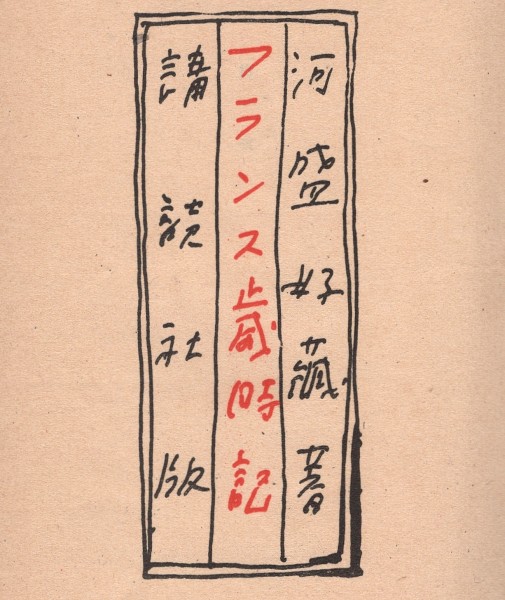 河盛好藏著
フランス歳時記
講読社版